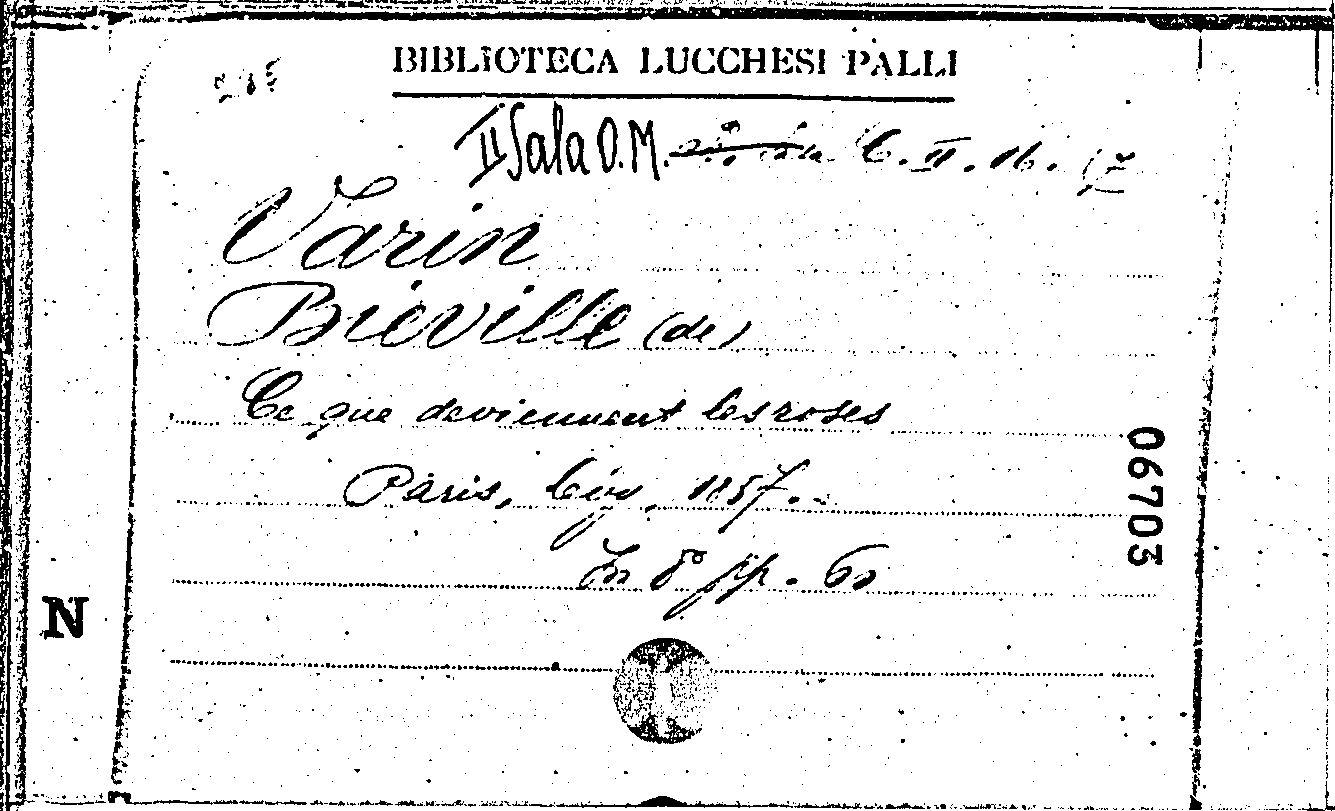 BIBLIOTECA LUCCHESI PALLI
II Sala O.M. C. II. 16. 17
Varin
Biéville (de)
Ce que deviennent les roses
Paris, Lévy, 1857.
In 8° pp. 60
06703
N